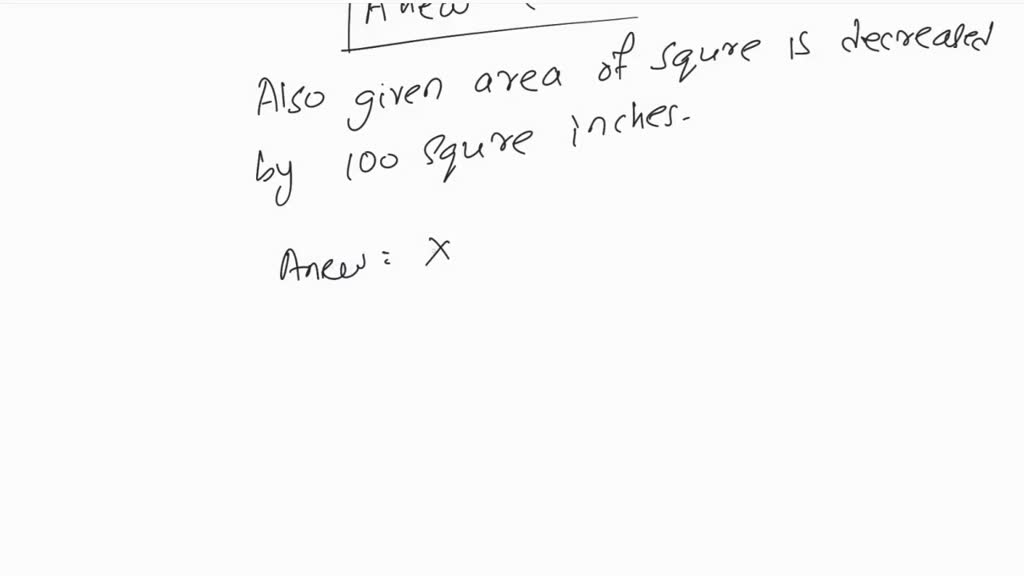 A new (
Also given area of squre is decreased
by 100 squre inches.
Anew = x